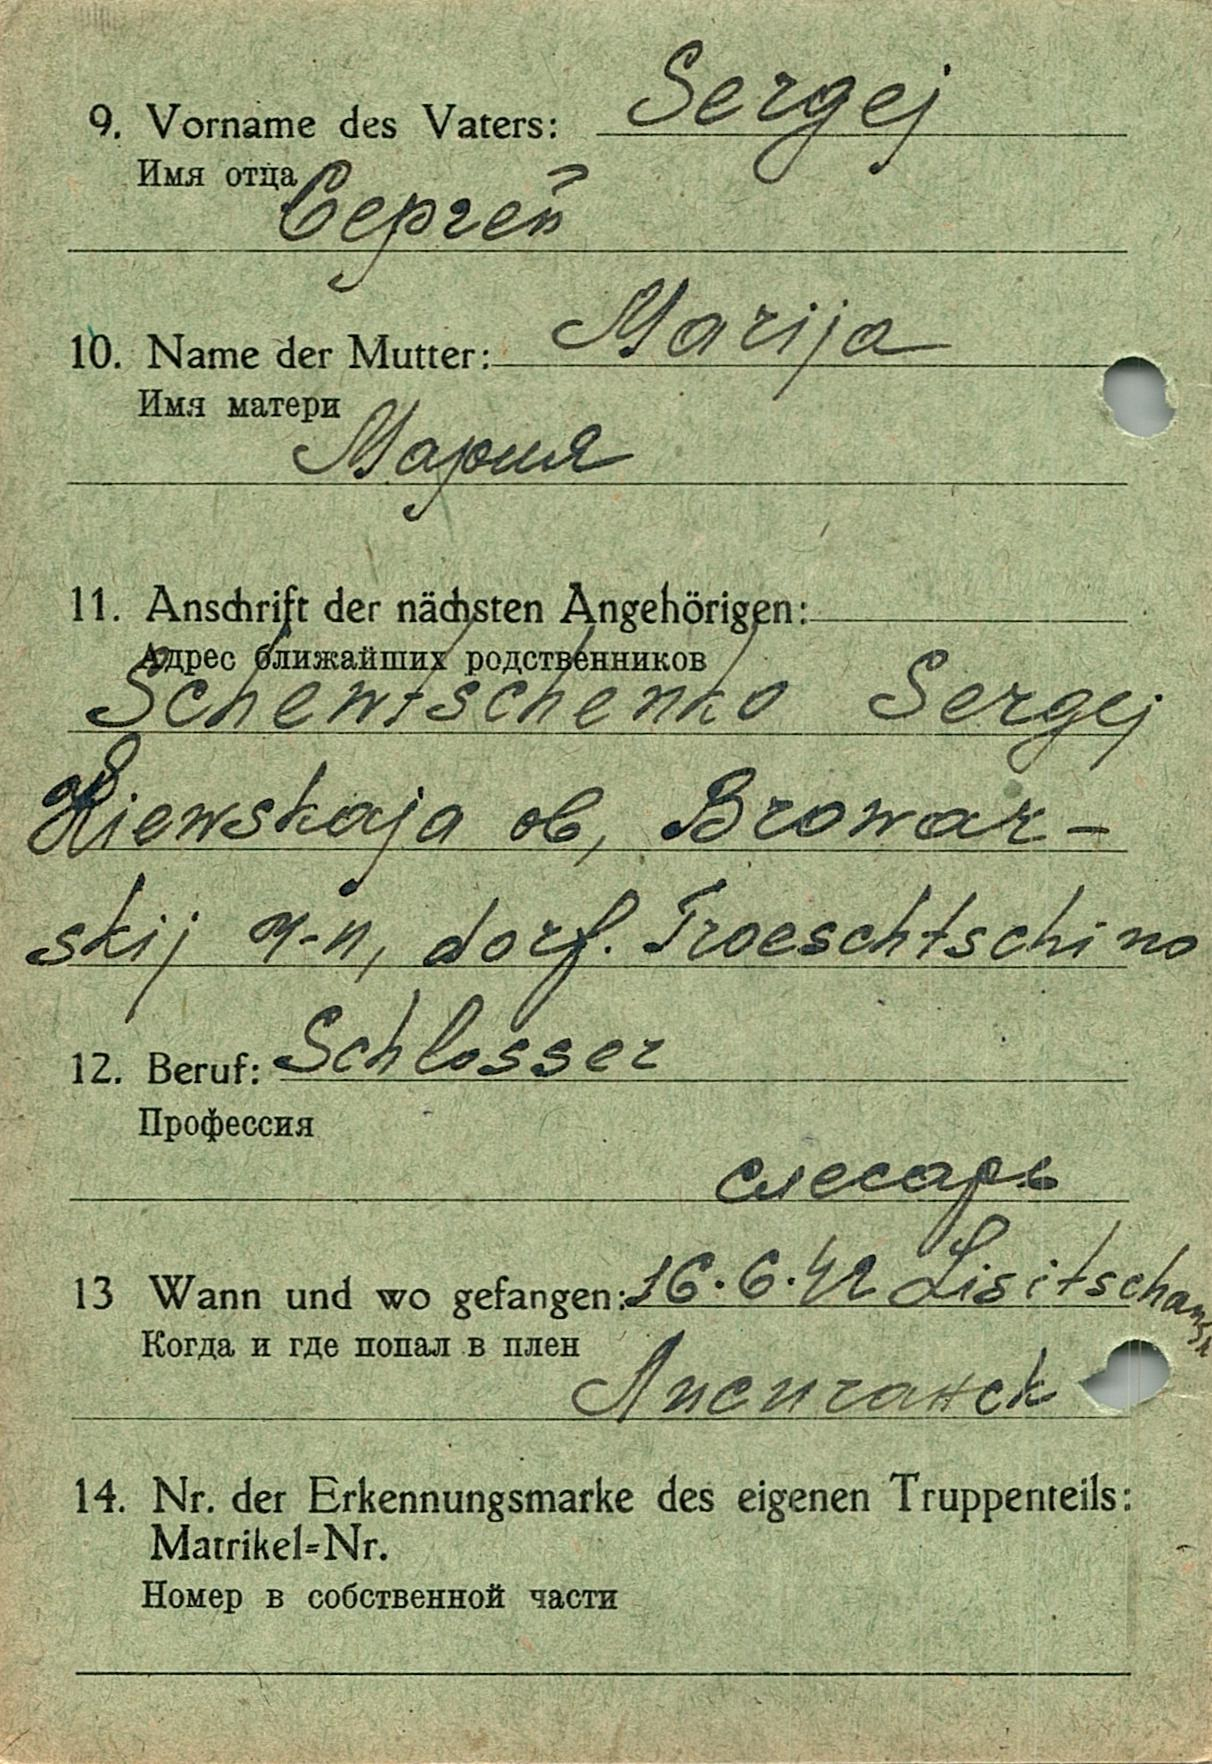 9. Vorname des Vaters: Sergej
Имя отца
Сергей
10. Name der Mutter: Marija
Имя матери
Мария
11. Anschrift der nächsten Angehörigen:
Адрес ближайших родственников
Schewtschenko Sergej
Kiewskaja ob, Browar-
skij r-n, dorf. Troeschtschino
12. Beruf: Schlosser
Профессия
слесарь
13 Wann und wo gefangen: 16.6.42 Lisitschansk
Когда и где попал в плен
Лисичанск
14. Nr. der Erkennungsmarke des eigenen Truppenteils:
Matrikel=Nr.
Номер в собственной части